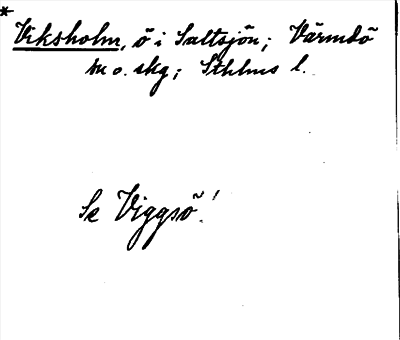 *
Viksholm, ö i Saltsjön; Värmdö
m o. skg; Sthlms l.
Se Viggsö!